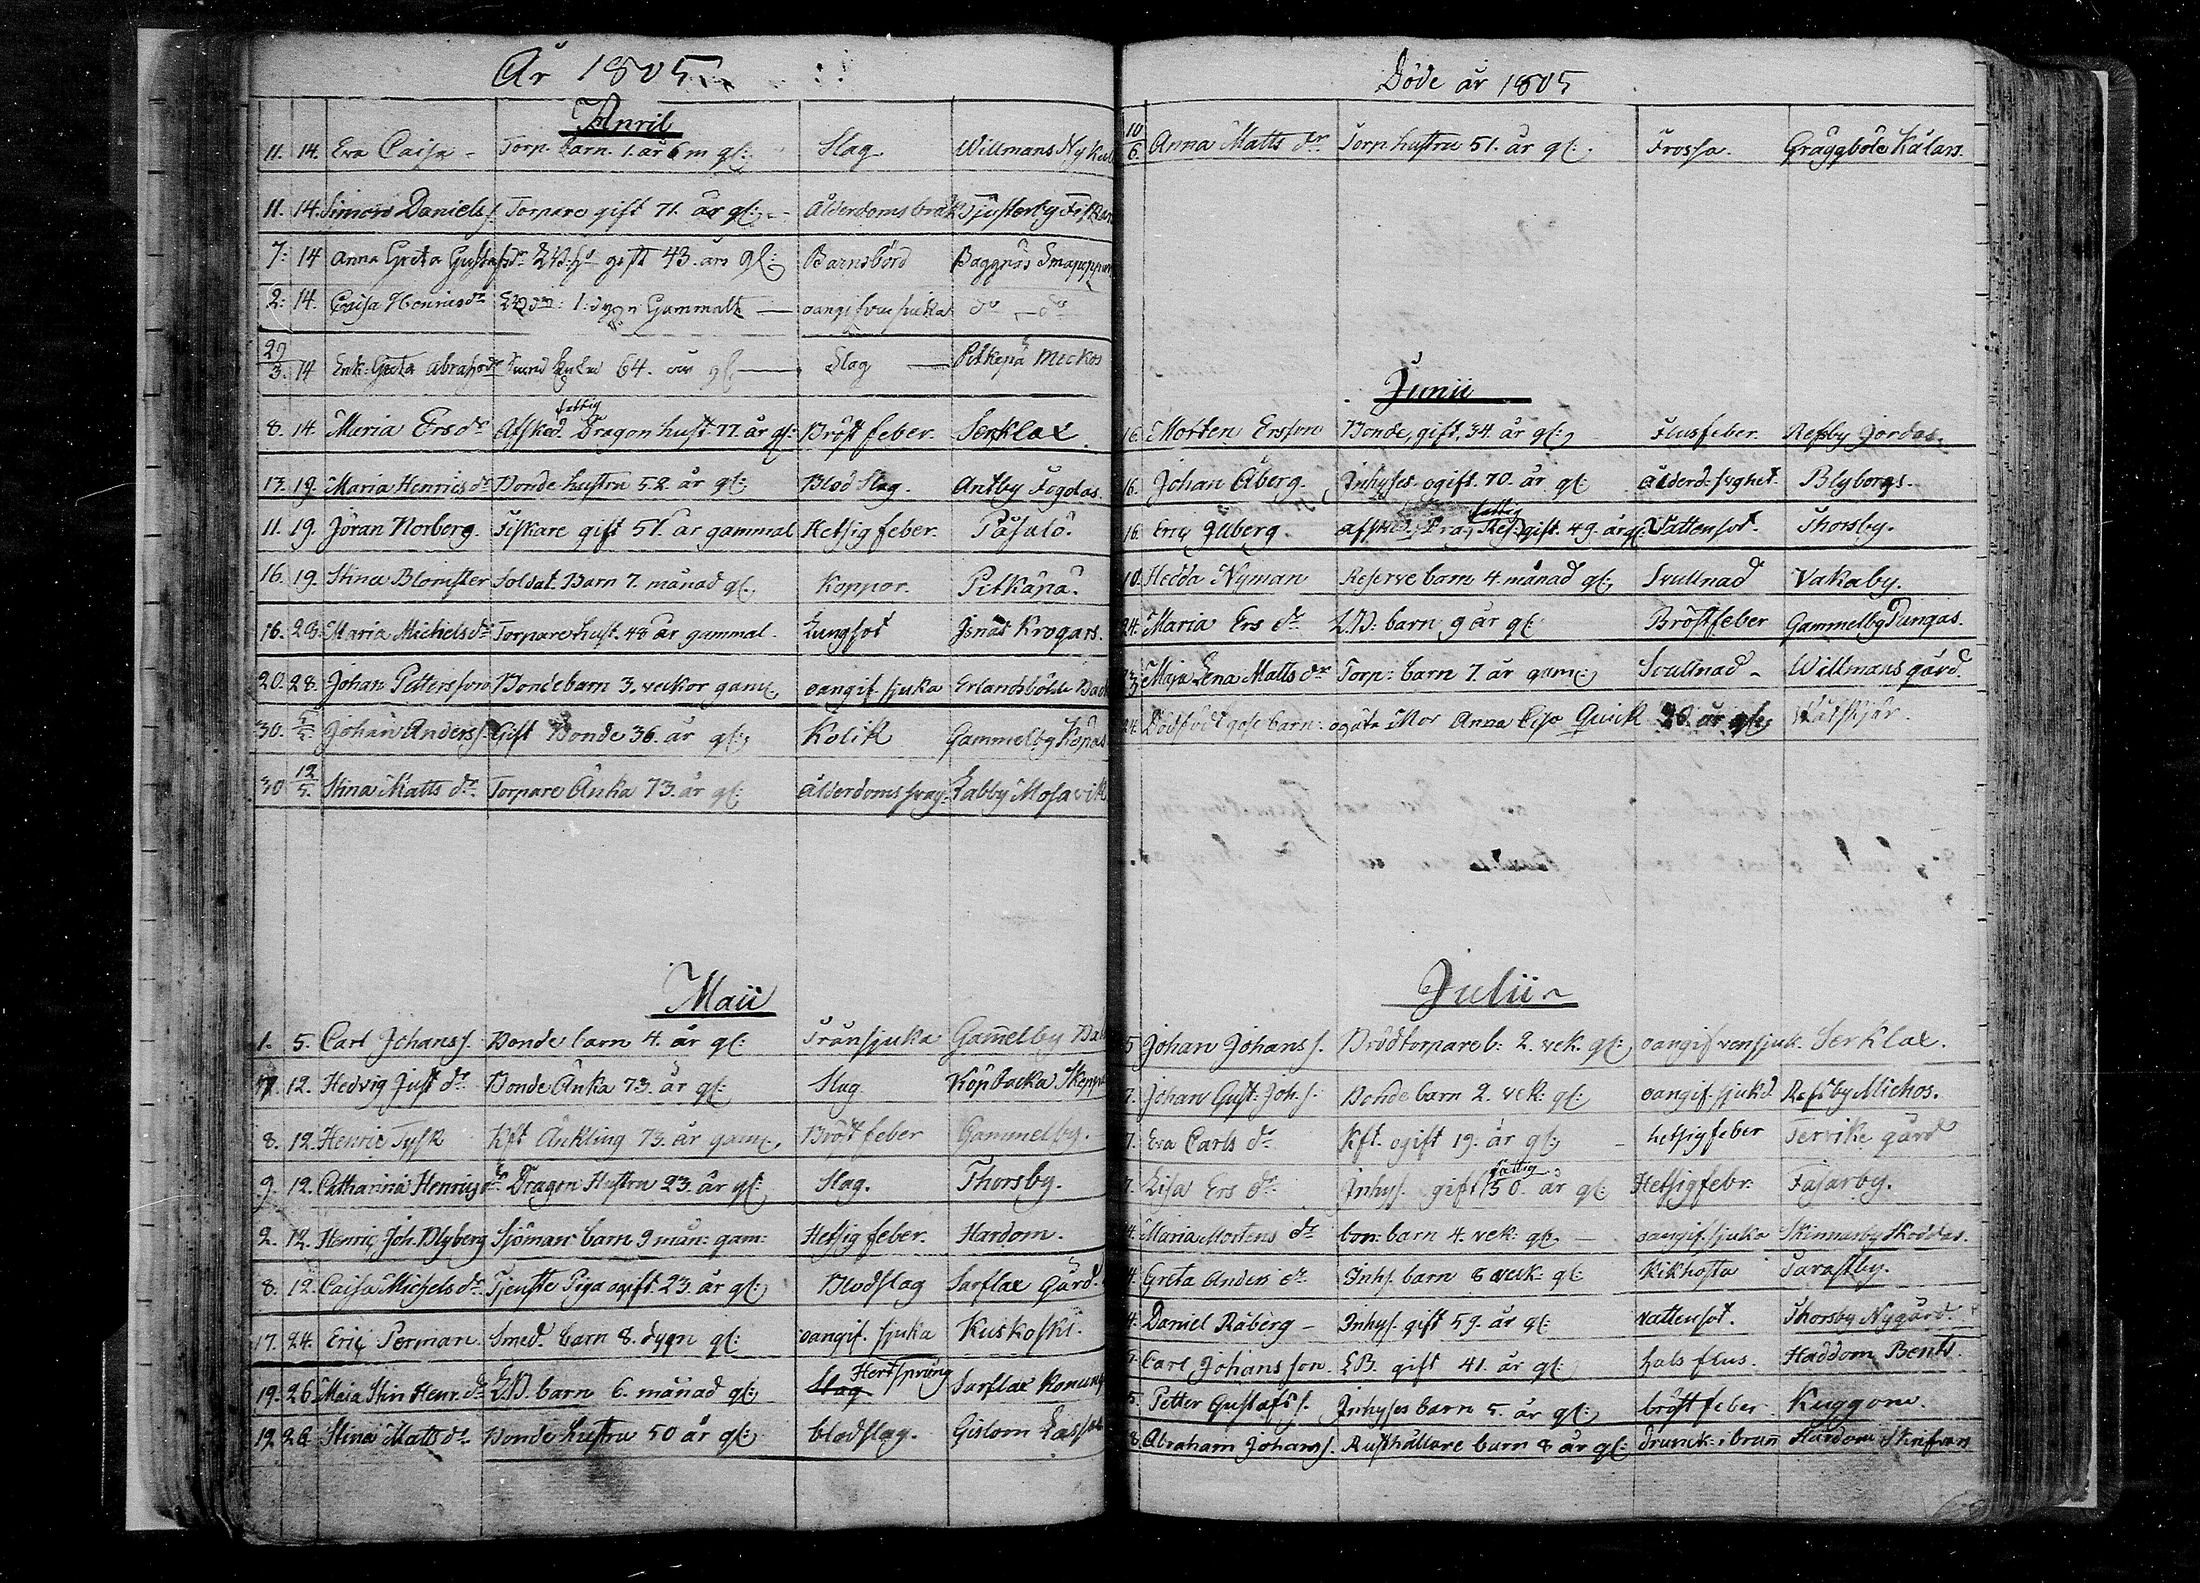 År 1805
April
11. 14. Eva Caisa - Torp. barn. 1. år 6 m gl: Slag Willmans
11. 14. Simon Daniels s. Torpare gift 71. år gl: Ålderdoms bräk Tjusterby
7: 14 Anna Greta Gustafsdr gift 43. års gl: Barnsbörd Baggnäs
2: 14. Caisa Henricsdr 1: dygn Gammalt oangifven sjuka do do
29/3. 14 Enk: Greta Abrahsdr 64. år gl Slag Pitkepä Mickos
fattig
8. 14. Maria Ersdr Afsked. Dragon hust. 77. år gl: Bröst feber. Serklax.
17. 19. Maria Henricsdr Bonde hustru 52. år gl: Blod Slag. Antby Fogdas
11. 19. Jöran Norberg. Fiskare gift 51. år gammal Hetsig feber. Påsalö.
16. 19. Stina Blomster Soldat. Barn 7. månad gl: Koppor. Pitkäpä.
16. 28. Maria Michelsdr Torpare hust. 48 år gammal. Lungsot Isnäs Krogars.
20. 28. Johan Pettersson Bonde barn 3. veckor gaml. oangif. sjuka Erlandsböle
30. 5/5 Johan Anders s. Gift Bonde 36. år gl: Kolik Gammelby
30 12/5. Stina Matts dr. Torpare Änka 73. år gl: ålderdoms svag: Labby Mosavik
Maii
1. 5. Carl Johans s. Bonde barn 4. år gl: Trånsjuka Gammelby
7. 12. Hedvig Just dr Bonde Änka 73. år gl: Slag Köpbacka
8. 12. Henric Tysk Kft Änkling 73. år gaml. Bröst feber Gammelby.
9. 12. Catharina Henricsdr Dragon Hustru 23. år gl: Slag. Thorsby.
2. 12. Henric Joh. Blyberg Sjöman barn 9 mån: gam: Hetsig feber. Hardom.
8. 12. Caisa Michelsdr Tjenste Piga ogift. 23. år gl: Blodslag Sarflax Gård.
17. 24. Eric Perman Smed. barn 8. dygn gl: oangif. sjuka Kuskoski.
19. 26 Maia Stin Henr. dr LB. barn 6. månad gl: Slag Hertsprång Sarflax
19. 26 Stina Matts dr. Bonde hustru 50 år gl: blodslag. Gislom
Döde år 1805
10/6 Anna Matts dr Torp hustru 51. år gl: Frossa. Gräggböle Kälars.
Junii
16. Morten Ersson Bonde, gift, 34. år gl: Flusfeber. Refsby Jordas.
16. Johan Åberg. Inhyses ogift. 70. år gl: ålderd: svaghet. Blybergs.
fattig
16. Eric Ålberg. gift. 49. år gl: Vattensot. Thorsby.
10. Hedda Nyman Reserve barn 4. månad gl: Svullnad Vakaby.
24. Maria Ers dr LB: barn 9 år gl: Bröstfeber Gammelby Pungas.
Maja Lena Matts dr Torp: barn 7. år gam: Svullnad - Willmans gård.
24. Dödfödt gosse barn: oäkta Mor Anna Lisa Quick år gl:
Julii
5 Johan Johans s. Brödtorpare b: 2. vek. gl: oangifven sjuk. Serklax.
7. Johan Gust: Joh. s. Bonde barn 2. vek: gl: oangif. sjukd. Refsby Michos.
7. Eva Carls dr Kft. ogift 19. år gl: hetsig feber Tervike gård
fattig
7. Lisa Ers dr Inhys. gift 50. år gl: Hetsigfebr: Fasarby.
4. Maria Mortens dr bon: barn 4. vek: gl: oangif. sjuka Skinnarby Skoddas.
4. Greta Anders dr. Inhs. barn 8 veck: gl: Kikhosta Tavastby.
4. Daniel Råberg - Inhys. gift 59. år gl: vattensot. Thorsby Nygård.
5. Carl Johansson. LB. gift 41. år gl: hals flus. Haddom Bents.
5. Petter Gustafs s. Inhyses barn 5. år gl: bröst feber Kuggom.
8. Abraham Johans s. Rusthållare barn 8 år gl: drunck: i brunn Hardom